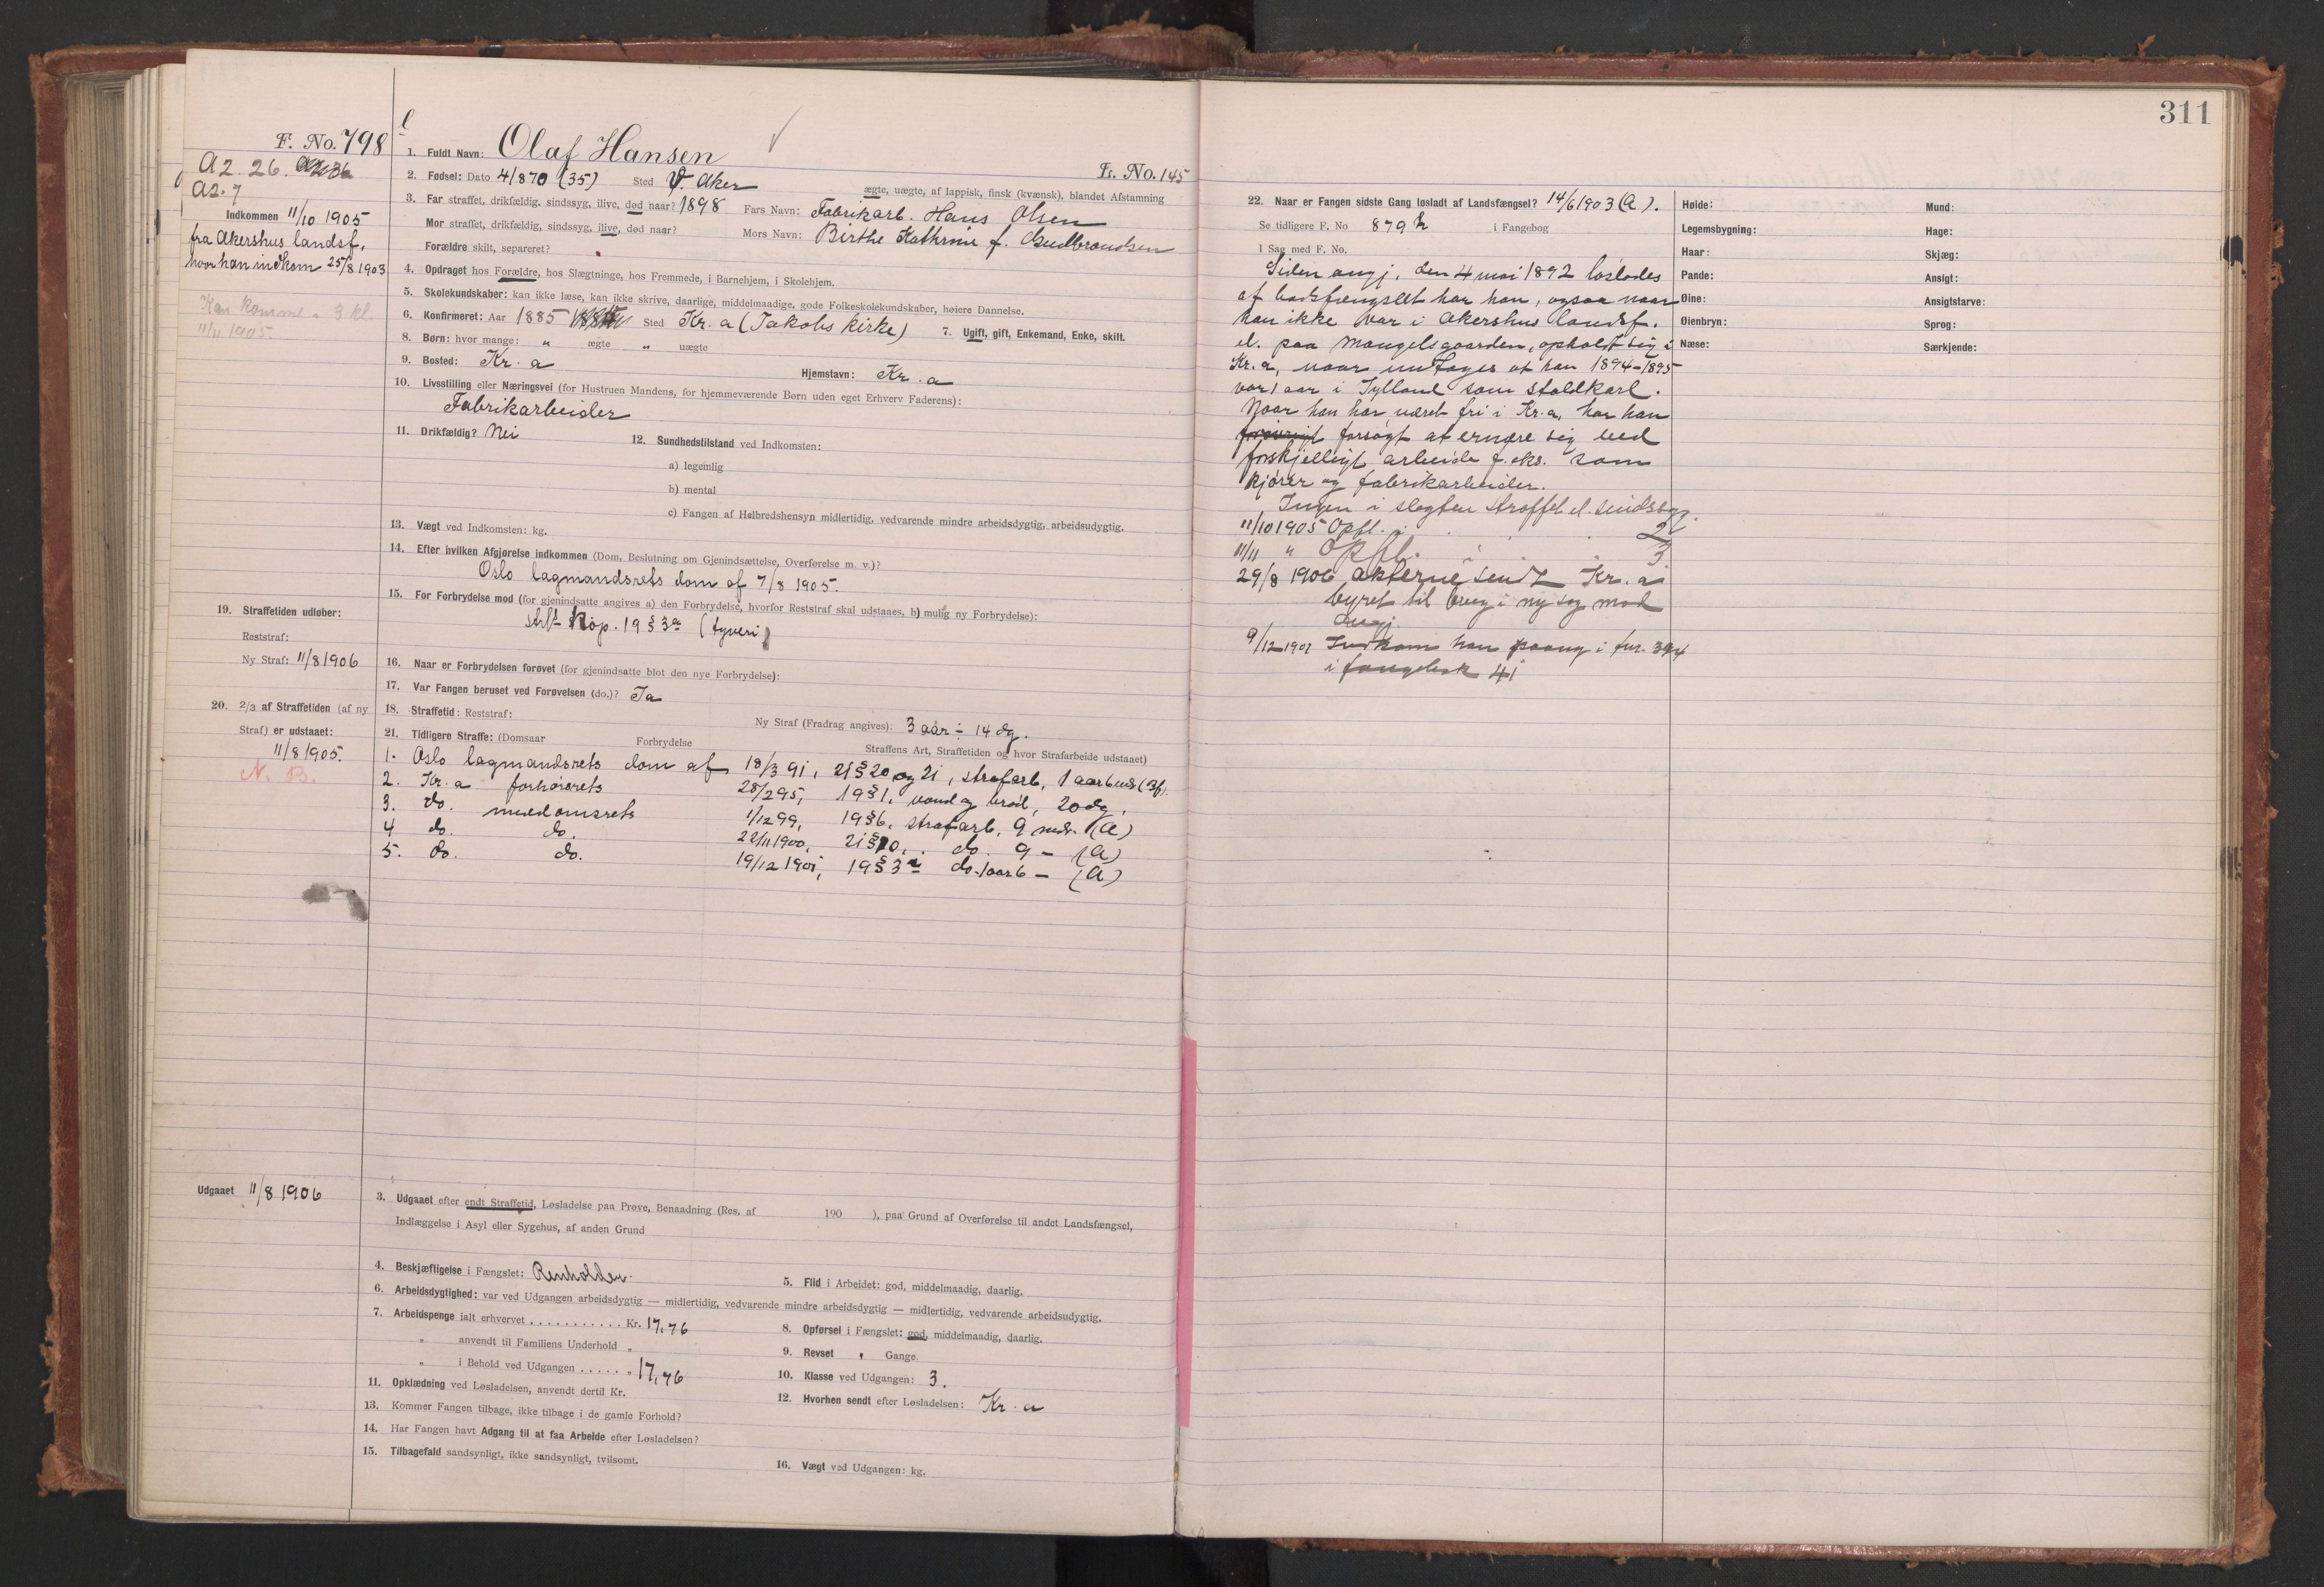 311
F. No. 798 l
A2. 26.
A2. 7
Indkommen 11/10 1905
fra Akershus landsf.
hvor han indkom 25/8 1903
Kan komme i 3 kl.
11/11 1905.
1. Fuldt Navn: Olaf Hansen
Fr. No. 145
2. Fødsel: Dato 4/8 70 (35) Sted V. Aker
ægte, uægte, af lappisk, finsk (kvænsk), blandet Afstamning
3. Far straffet, drikfældig, sindssyg, ilive, død naar? 1898 Fars Navn: Fabrikarb. Hans Olsen
Mor straffet, drikfældig, sindssyg, ilive, død naar? Mors Navn: Birthe Kathrine f. Gudbrandsen
Forældre skilt, separeret?
4. Opdraget hos Forældre, hos Slægtninge, hos Fremmede, i Barnehjem, i Skolehjem.
5. Skolekundskaber: kan ikke læse, kan ikke skrive, daarlige, middelmaadige, gode Folkeskolekundskaber, høiere Dannelse.
6. Konfirmeret: Aar 1885 Sted Kr.a (Jakobs kirke) 7. Ugift, gift, Enkemand, Enke, skilt.
8. Børn: hvor mange: " ægte " uægte
9. Bosted: Kr.a Hjemstavn: Kr.a
10. Livsstilling eller Næringsvei (for Hustruen Mandens, for hjemmeværende Børn uden eget Erhverv Faderens):
Fabrikarbeider
11. Drikfældig? Nei 12. Sundhedstilstand ved Indkomsten:
a) legemlig
b) mental
c) Fangen af Helbredshensyn midlertidig, vedvarende mindre arbeidsdygtig, arbeidsudygtig.
13. Vægt ved Indkomsten: kg.
14. Efter hvilken Afgjørelse indkommen (Dom, Beslutning om Gjenindsættelse, Overførelse m. v.)?
Oslo lagmandsrets dom af 7/8 1905.
15. For Forbrydelse mod (for gjenindsatte angives a) den Forbrydelse, hvorfor Reststraf skal udstaaes, b) mulig ny Forbrydelse):
strfl. kap. 19 § 3 (tyveri)
16. Naar er Forbrydelsen forøvet (for gjenindsatte blot den nye Forbrydelse):
17. Var Fangen beruset ved Forøvelsen (do.)? Ja
18. Straffetid: Reststraf: Ny Straf (Fradrag angives): 3 aar ÷ 14 dg.
19. Straffetiden udløber:
Reststraf:
Ny Straf: 11/8 1906
20. 2/3 af Straffetiden (af ny
Straf) er udstaaet:
11/8 1905.
N. B.
21. Tidligere Straffe: (Domsaar Forbrydelse Straffens Art, Straffetiden og hvor Strafarbeide udstaaet)
1. Oslo lagmandsrets dom af 18/3 91, 21 § 20 og 21, strafarb, 1 aar 6 mdr (Bf).
2. Kr.a forhørsrets 28/2 95, 19 § 1, vand og brød, 20 dg.
3. do. meddomsrets 1/12 99, 19 § 6, strafarb, 9 mdr. (A)
4 do. do. 22/11 1900, 21 § 10, do. 9 — (A)
5. do. do. 19/12 1901, 19 § 3 do. 1 aar 6 — (A)
Udgaaet 11/8 1906
3. Udgaaet efter endt Straffetid, Løsladelse paa Prøve, Benaadning (Res. af 190 ), paa Grund af Overførelse til andet Landsfængsel,
Indlæggelse i Asyl eller Sygehus, af anden Grund
4. Beskjæftigelse i Fængslet: Renholder. 5. Flid i Arbeidet: god, middelmaadig, daarlig.
6. Arbeidsdygtighed: var ved Udgangen arbeidsdygtig — midlertidig, vedvarende mindre arbeidsdygtig — midlertidig, vedvarende arbeidsudygtig.
7. Arbeidspenge ialt erhvervet . . . . . . . . . . . Kr. 17,76 8. Opførsel i Fængslet: god, middelmaadig, daarlig.
" anvendt til Familiens Underhold " 9. Revset " Gange.
" i Behold ved Udgangen . . . . . " 17,76 10. Klasse ved Udgangen: 3.
11. Opklædning ved Løsladelsen, anvendt dertil Kr. 12. Hvorhen sendt efter Løsladelsen: Kr.a
13. Kommer Fangen tilbage, ikke tilbage i de gamle Forhold?
14. Har Fangen havt Adgang til at faa Arbeide efter Løsladelsen?
15. Tilbagefald sandsynligt, ikke sandsynligt, tvilsomt. 16. Vægt ved Udgangen: kg.
22. Naar er Fangen sidste Gang løsladt af Landsfængsel? 14/6 1903 (A).
Se tidligere F. No 879 h i Fangebog
I Sag med F. No.
Siden angj. den 4 mai 1892 løslodes
af bodsfængslet har han, ogsaa naar
han ikke var i Akershus landsf.
el. paa Mangelsgaarden, opholdt sig i
Kr.a, naar undtages at han 1894-1895
var 1 aar i Jylland som staldkarl.
Naar han har været fri i Kr.a, har han
forsøgt at ernære sig ved
forskjelligt arbeide f. eks. som
kjører og fabrikarbeider.
Ingen i slegten straffet el. sindssyg.
11/10 1905 Opfl. i . . . 2
11/11 " Opfl. i . . 3
29/8 1906 akterne sendt Kr.a
byret til brug i ny sag mod
angj.
9/12 1907 Indkom han paany i fnr. 394
i fangebok 41
Høide:
Legemsbygning:
Haar:
Pande:
Øine:
Øienbryn:
Næse:
Mund:
Hage:
Skjæg:
Ansigt:
Ansigtsfarve:
Sprog:
Særkjende: